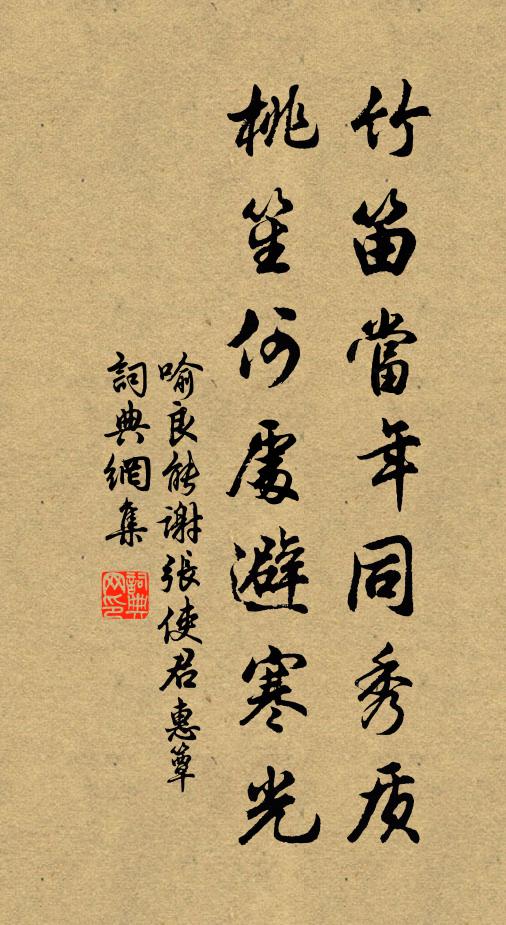 竹笛當年同秀质
桃笙何處避寒光
喻良能谢張使君惠簟
詞典網集
詞典网印